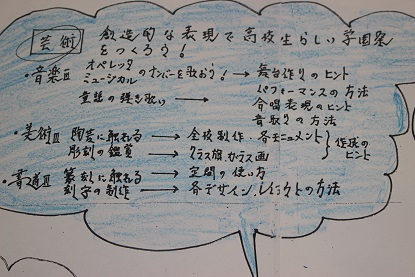 芸術 創造的な表現で高校生らしい学園祭
をつくろう!
・音楽Ⅲ オペレッタ
ミュージカル のナンバーを歌おう! → 舞台作りのヒント
パフォーマンスの方法
童謡の弾き歌い → 合唱表現のヒント
音取りの方法
・美術Ⅲ 陶芸に触れる → 全校制作・各モニュメント
彫刻の鑑賞 → クラス旗・ガラス画
作成の
ヒント
・書道Ⅲ 篆刻に触れる → 空間の使い方
刻字の制作 → 各デザイン、レイアウトの方法